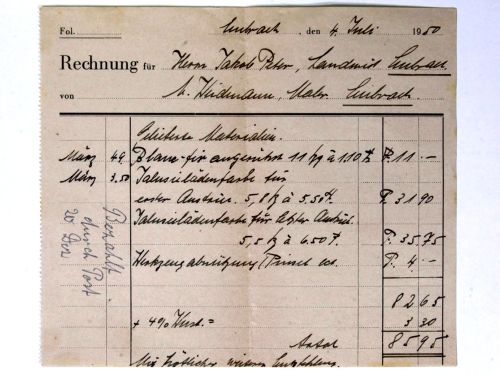 Fol. Embrach, den 4. Juli 1950
Rechnung für Herrn Jakob Peter, Landwirt Embrach.
von Maler. Embrach.
Gelieferte Materialien.
März 49. Blanc-fix angerührt 11 kg à 1.10 Fr. 11.-
März 3.50 Jalousielädenfarbe für
erster Anstrich. 5,8 kg à 5.50 Fr. 31 90
Jalousielädenfarbe für Anstrich.
5,5 kg à 6.50 Fr. 35.75
Werkzeugabnützung (Pinsel etc. Fr. 4.-
82 65
+ 4% Wust. = 3 30
Total 85 95
Mit höflicher Empfehlung
Bezahlt
durch Post
20 Dez